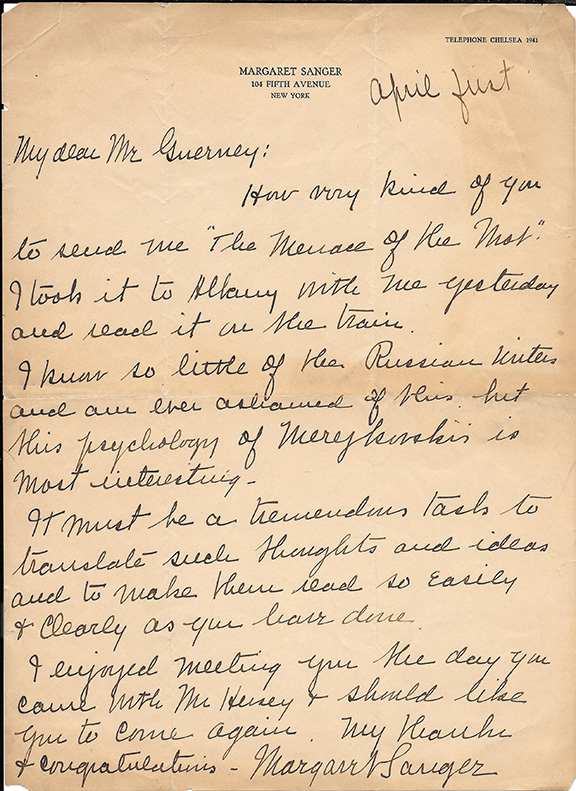 TELEPHONE CHELSEA 1941
MARGARET SANGER
104 FIFTH AVENUE
NEW YORK
April first
My dear Mr Guerney:
How very kind of you
to send me "The Menace of the Mob".
I took it to Albany with me yesterday
and read it on the train.
I know so little of the Russian writers
and am ever ashamed of this. but
this psychology of Merejkovski's is
most interesting -
It must be a tremendous task to
translate such thoughts and ideas
and to make them read so easily
& clearly as you have done.
I enjoyed meeting you the day you
came with Mr Hersey & should like
you to come again. My thanks
& congratulations - Margaret Sanger